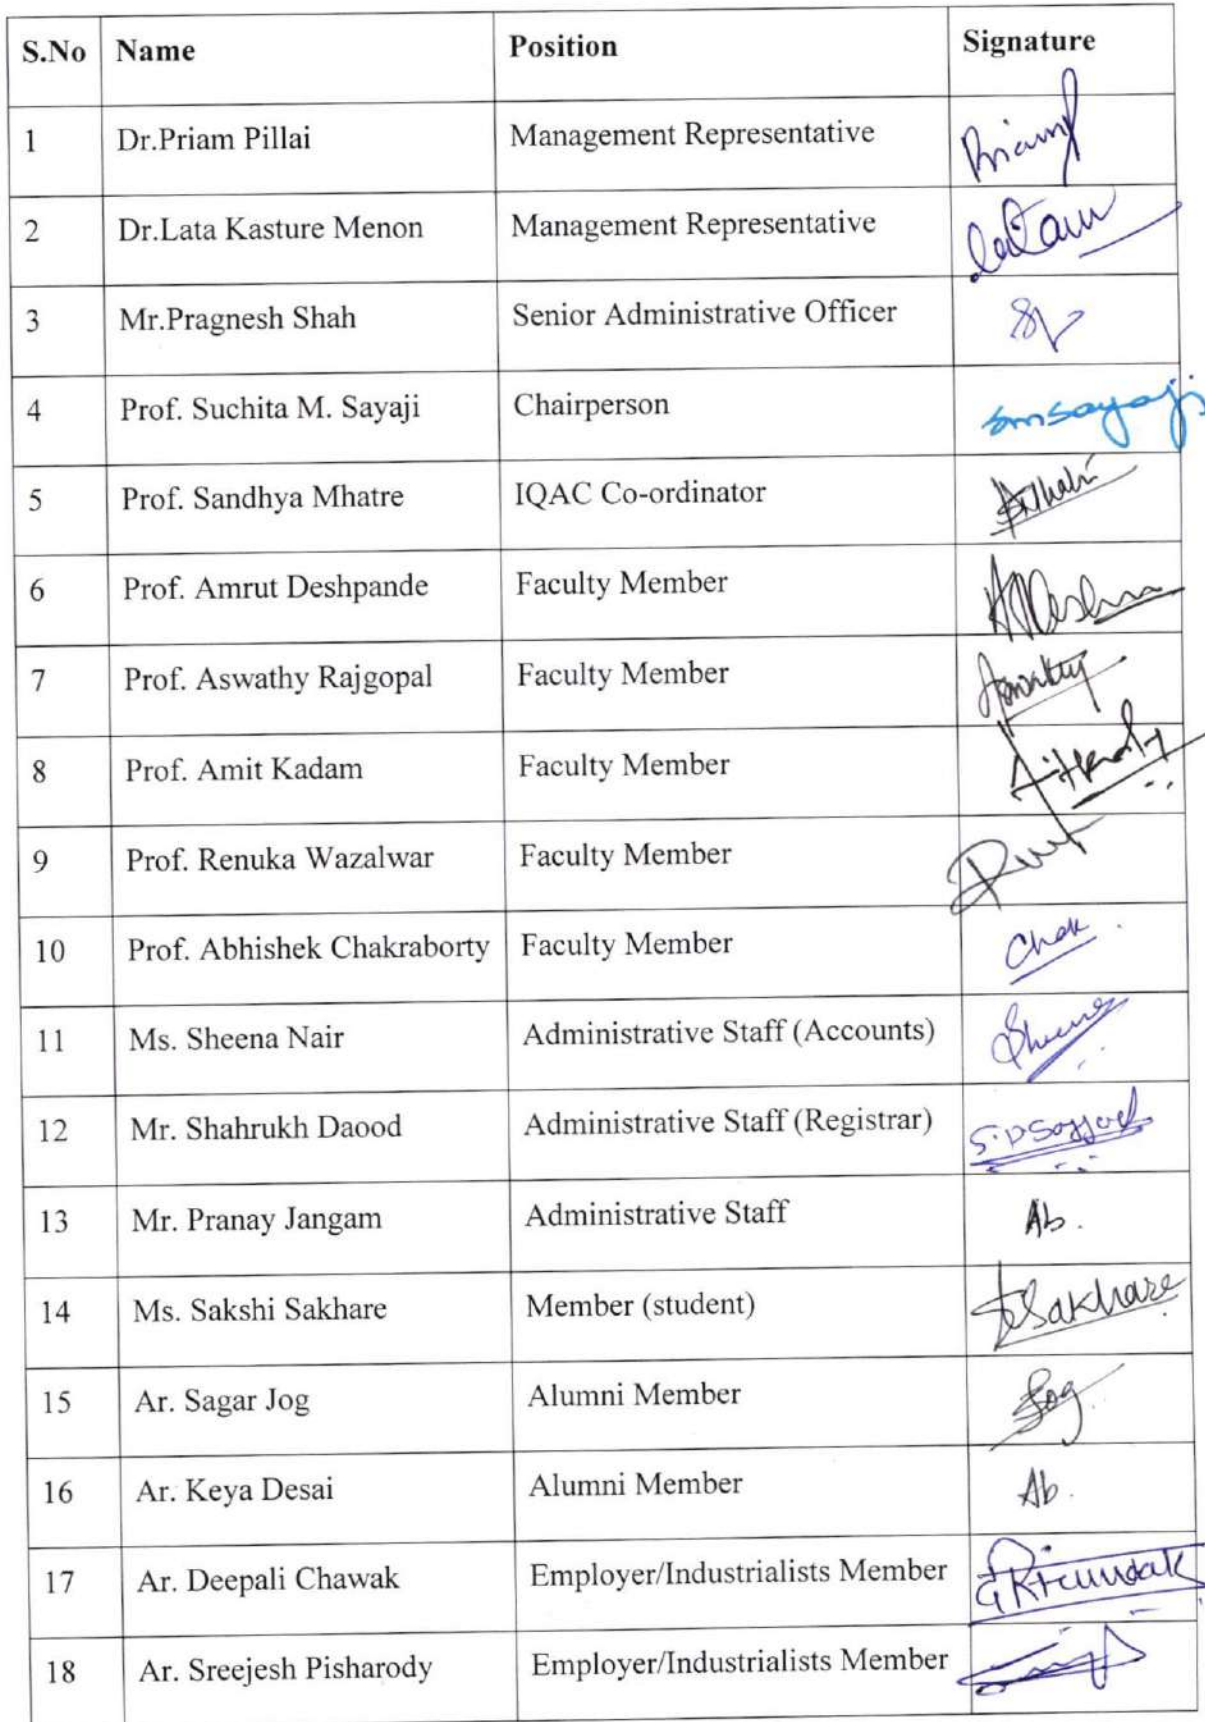 S.No Name Position Signature
1 Dr.Priam Pillai Management Representative Priam
2 Dr.Lata Kasture Menon Management Representative
3 Mr.Pragnesh Shah Senior Administrative Officer
4 Prof. Suchita M. Sayaji Chairperson smsayaji
5 Prof. Sandhya Mhatre IQAC Co-ordinator
6 Prof. Amrut Deshpande Faculty Member
7 Prof. Aswathy Rajgopal Faculty Member Aswathy
8 Prof. Amit Kadam Faculty Member
9 Prof. Renuka Wazalwar Faculty Member
10 Prof. Abhishek Chakraborty Faculty Member Chak.
11 Ms. Sheena Nair Administrative Staff (Accounts) Sheena
12 Mr. Shahrukh Daood Administrative Staff (Registrar)
13 Mr. Pranay Jangam Administrative Staff Ab.
14 Ms. Sakshi Sakhare Member (student) Sakhare
15 Ar. Sagar Jog Alumni Member Jog
16 Ar. Keya Desai Alumni Member Ab.
17 Ar. Deepali Chawak Employer/Industrialists Member
18 Ar. Sreejesh Pisharody Employer/Industrialists Member